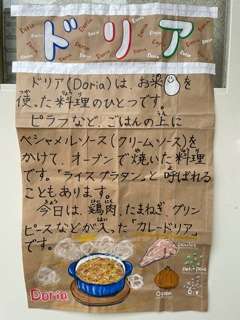 ドリア
ドリア(Doria)は、お米を
使った料理のひとつです。
ピラフなど、ごはんの上に
ベシャメルソース(クリームソース)を
かけて、オーブンで焼いた料理
です。「ライスグラタン」と呼ばれる
こともあります。
今日は、鶏肉、たまねぎ、グリン
ピースなどが入った「カレードリア」
です。
Doria
Onion